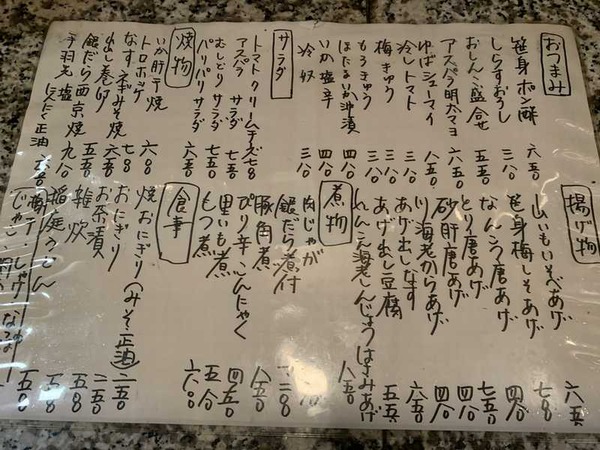 おつまみ
笹身ポン酢 六五〇
しらすおろし 三八〇
おしんこ盛合せ 五五〇
アスパラ明太マヨ 六五〇
ゆばシューマイ 八五〇
冷しトマト 三八〇
梅きゅう 三八〇
もろきゅう 三八〇
ほたるいか沖漬 四八〇
いか塩辛 四八〇
冷奴 三八〇
サラダ
トマトクリームチーズ 七八〇
アスパラサラダ 七五〇
むしどりサラダ 七五〇
パリパリサラダ 六五〇
焼物
いか肝干焼 六八〇
トロホッケ
なす本みそ焼 七八〇
だし巻き卵 六五〇
銀だら西京焼 九八〇
手羽先塩
揚げ物
しいもいそべあげ 六五〇
笹身梅しそあげ 七八〇
なんこつ唐あげ 四八〇
とり唐あげ 七五〇
砂肝唐あげ 四八〇
川海老からあげ 四八〇
あげ出しなす 六五〇
あげ出し豆腐 五五〇
れんこん海老しんじょうはさみあげ 八五〇
煮物
肉じゃが
銀だら煮付
豚角煮 八五〇
ぴり辛こんにゃく 四五〇
里いも煮 五八〇
もつ煮 六八〇
食事
焼おにぎり
おにぎり(みそ正油) 二五〇
お茶漬 五八〇
雑炊 五八〇
稲庭うどん